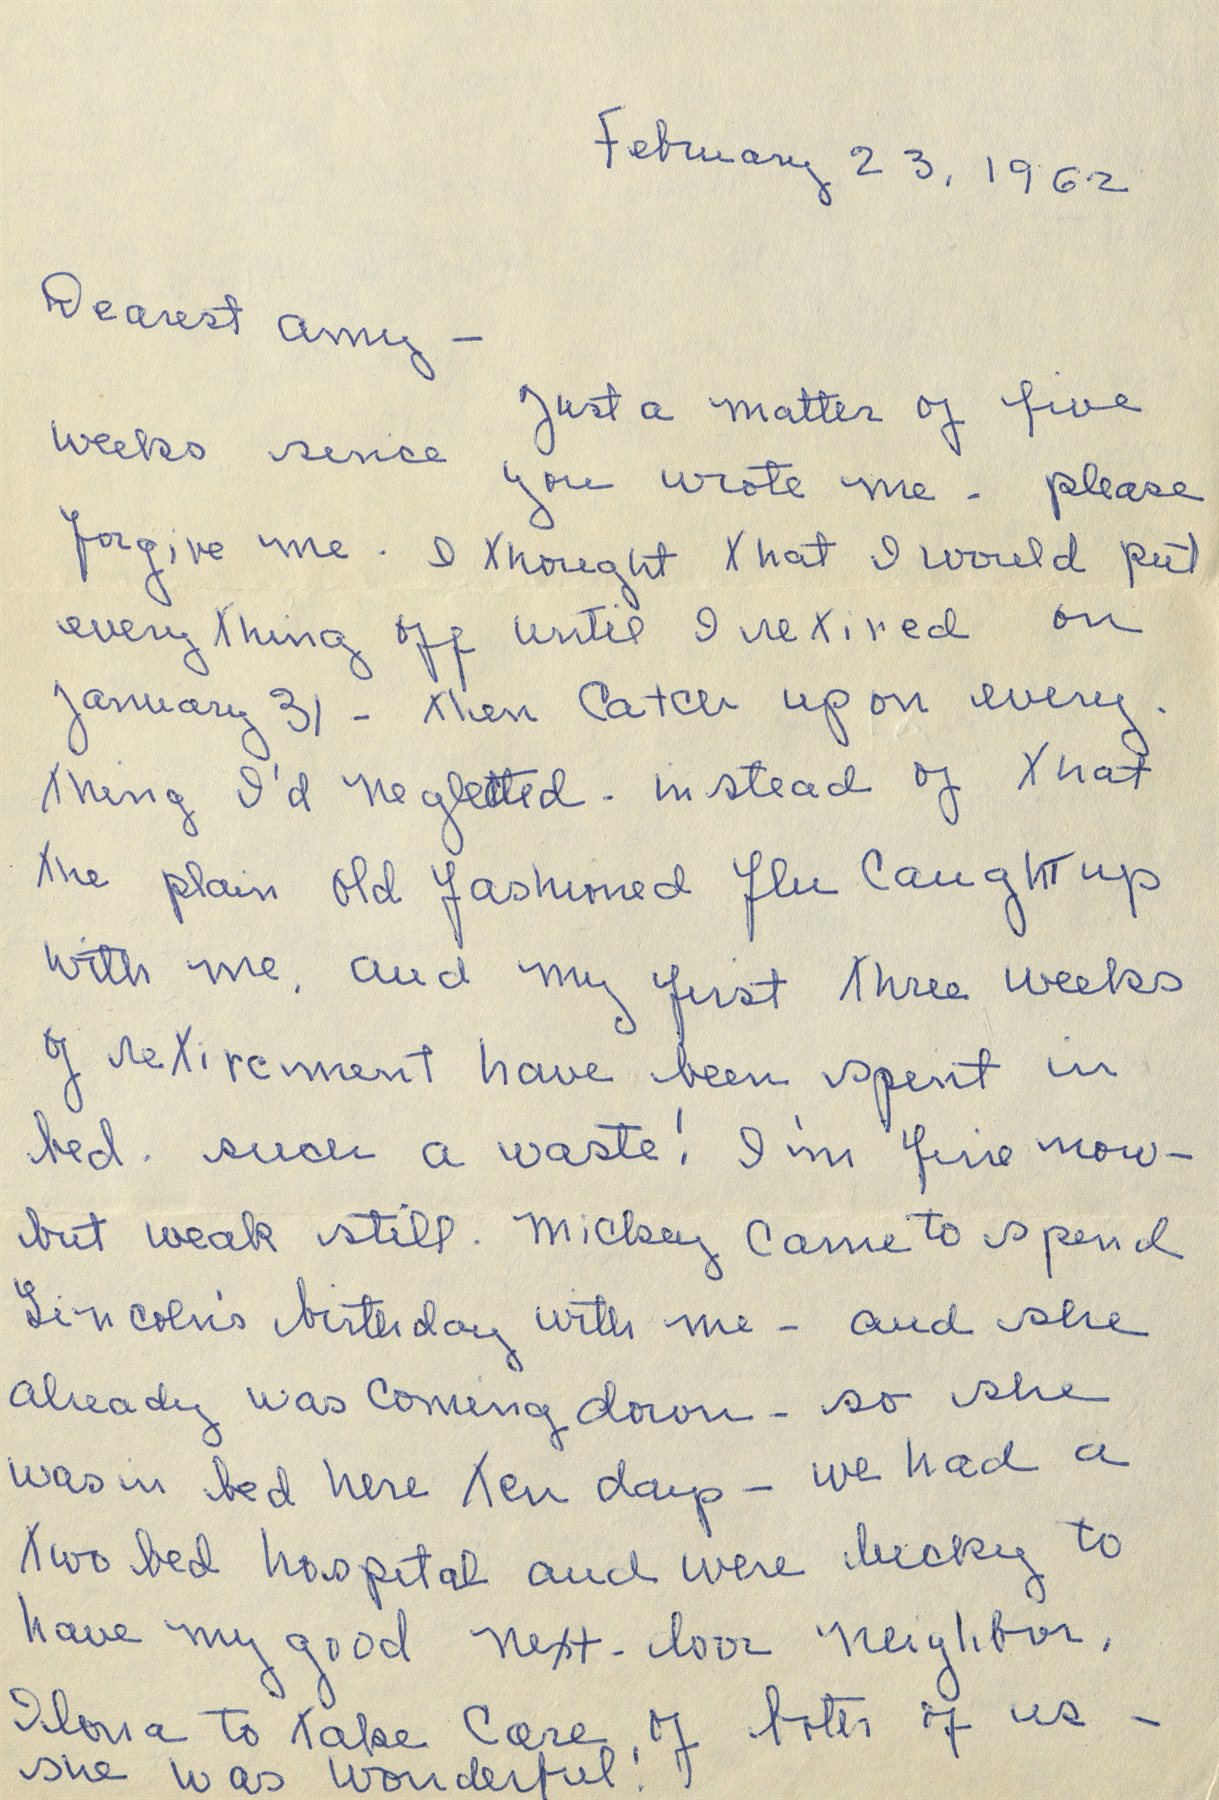 February 23, 1962
Dearest Amy –
Just a matter of five
weeks since you wrote me – please
forgive me. I thought that I would put
everything off until I retired on
January 31 – then catch up on every-
thing I'd neglected – instead of that
the plain old fashioned flu caught up
with me, and my first three weeks
of retirement have been spent in
bed. Such a waste! I'm fine now –
but weak still. Mickey came to spend
Lincoln's birthday with me – and she
already was coming down – so she
was in bed here ten days – we had a
two bed hospital and were lucky to
have my good next-door neighbor,
Ilona to take care of both of us –
she was wonderful!